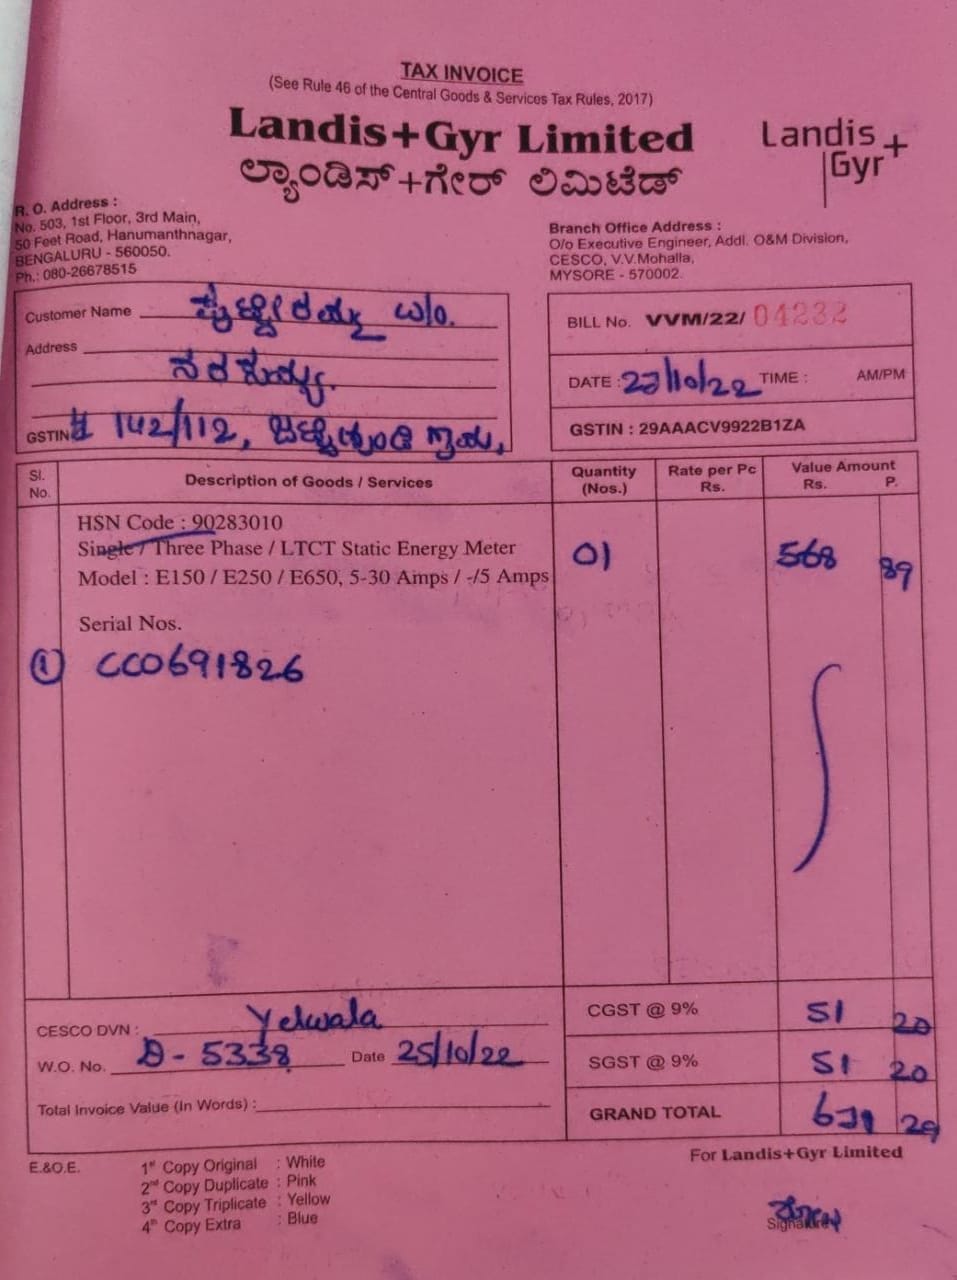 TAX INVOICE
(See Rule 46 of the Central Goods & Services Tax Rules, 2017)
Landis+Gyr Limited
ಲ್ಯಾಂಡಿಸ್+ಗೇರ್ ಲಿಮಿಟೆಡ್
Landis+
Gyr
R. O. Address :
No. 503, 1st Floor, 3rd Main,
50 Feet Road, Hanumanthnagar,
BENGALURU - 560050.
Ph.: 080-26678515
Branch Office Address :
O/o Executive Engineer, Addl. O&M Division,
CESCO, V.V.Mohalla,
MYSORE - 570002.
Customer Name W/O.
Address
GSTIN # 142/112,
BILL No. VVM/22/ 04232
DATE : 27/10/22 TIME : AM/PM
GSTIN : 29AAACV9922B1ZA
Sl. No. Description of Goods / Services Quantity (Nos.) Rate per Pc Rs. Value Amount Rs. P.
HSN Code : 90283010
Single / Three Phase / LTCT Static Energy Meter 01 568 89
Model : E150 / E250 / E650, 5-30 Amps / -/5 Amps
Serial Nos.
① CC0691826
CESCO DVN : Yelwala
W.O. No. D - 5338 Date 25/10/22
Total Invoice Value (In Words) :
CGST @ 9% 51 20
SGST @ 9% 51 20
GRAND TOTAL 671 29
E.&O.E.
1st Copy Original : White
2nd Copy Duplicate : Pink
3rd Copy Triplicate : Yellow
4th Copy Extra : Blue
For Landis+Gyr Limited
Signature